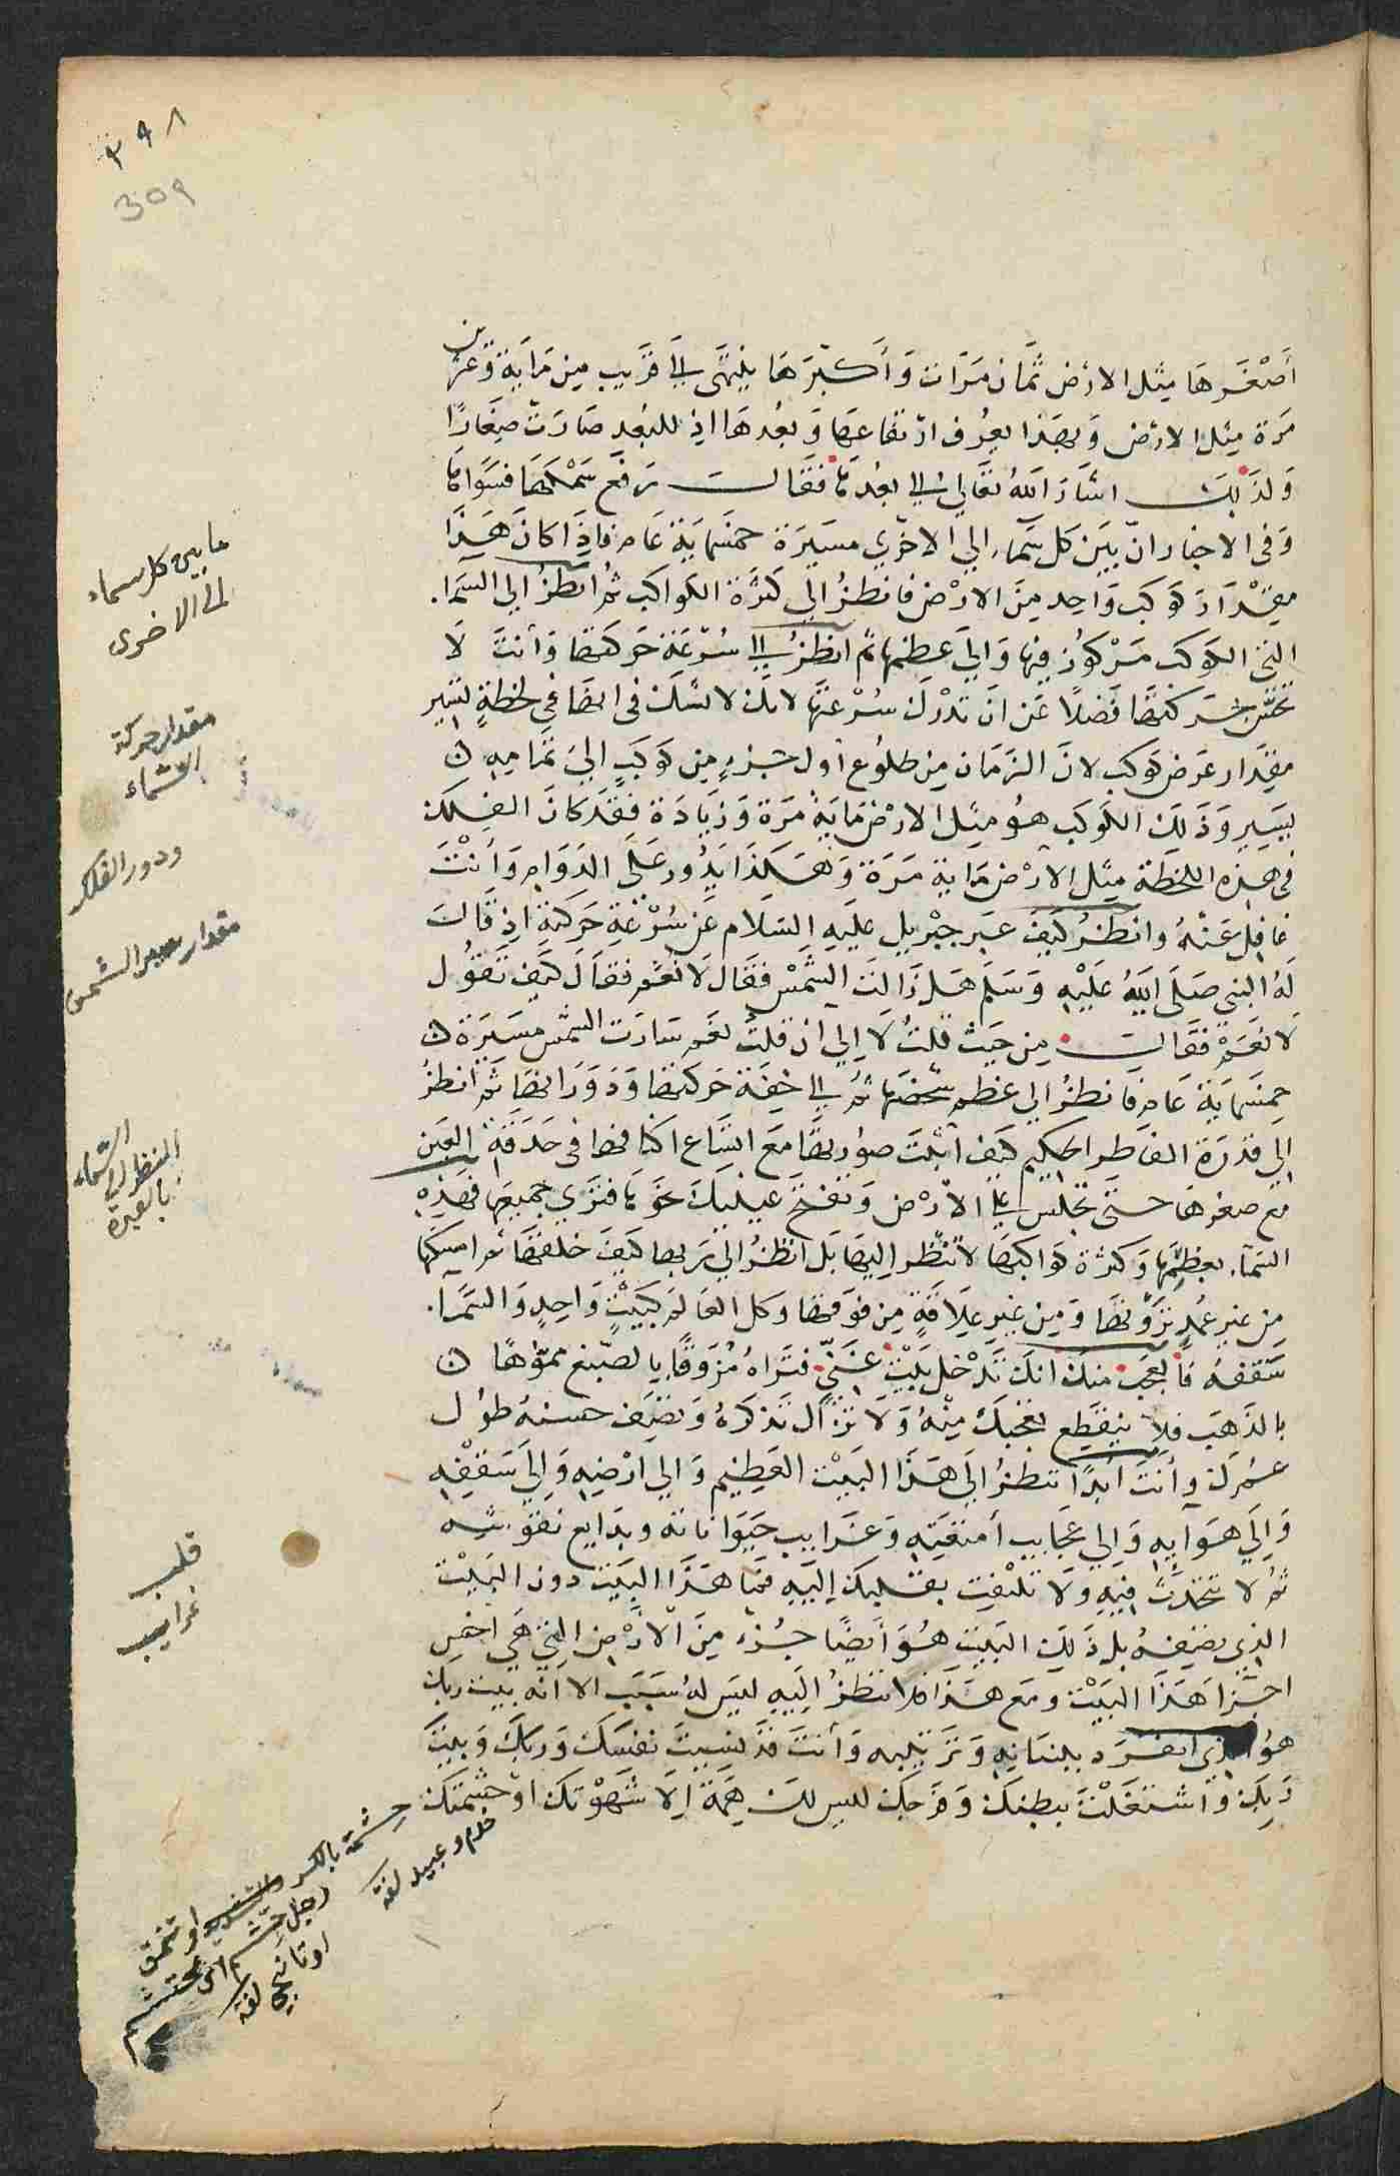 ٣٩٨
309
أَصْغَرهَا مِثل الارض ثمان مرّات وَأَكبَرهَا ينتهَى إلى قريب مِن مَايَة وَعشرين
مَرة مِثل الارض وَبهَذا يعرف ارتفاعهَا وَبُعدهَا اذ للبُعد صَارَت صِغَارًا
وَلذَلِكَ اشَارَ اللَّهُ تعَالى إلى بعُدهَا فقَالَ رَفَعَ سَمْكَهَا فسَوَّاهَا
وَفى الاخبار انّ بَيَن كل سَمَاء الي الاخرَي مَسِيَرة خمسَمايَة عَام فاذَا كانَ هَذَا
مِقدَارَ كوَكب وَاحِد مِنَ الارْض فانظرُ الي كَثرَة الكواكب ثمُ انظرُ إلى السّمآء
التى الكوكب مَرْكوُز فِيهَا وَاِلى عظمهَا ثمّ انظرُ إلى سُرْعَة حَركتهَا وَأنتَ لَا
تحسّ بحَركتهَا فَضلاً عَن انَ تدْركَ سُرْعتهَا لانك لا تشك فى انهَا فى لحظةٍ تسَير
مِقدَار عَرض كوكب لانَ الزمَان مِن طلوُع أول جُزءٍ مِن كوَكب الى تمَامِهِ
يسَير وَذلِكَ الكوكب هوُ مِثل الارْض مَايَة مَرة وَزيَادَة فقَد دَارَ الفلك
فى هَذِه اللحظَة مِثل الارْض مَايَة مَرَة وَهَكذَا يَدُور عَلَى الدَوَام وَأنْتَ
غافِل عَنْهُ وانظرُ كيَفَ عَبر جبْريل عليَهِ السَلام عَن سُرْعَةِ حَركتِهِ اذ قَال
لَهُ النبي صَلى اللهُ عَليْهِ وَسَلّم هَل زَالتَ الشَمْس فقَالَ لَا نعَم فقَالَ كَيَف تقوُل
لا نعَمْ فقَال مِن حَيث قلتُ لَا إلى أن قلتُ نعَم سَارَت الشمْس مَسيرَة
خمسَمايَة عَام فانظرُ الي عظم شخصَهَا ثمُ الى خِفة حَركتهَا وَدَوَرَانهَا ثم انظرُ
إلى قدرَة الفاطر الحكيم كَيَف أثبَت صوُرتهَا مَعَ اتسَاع اكنافهَا فى حَدَقَة العَين
مَعَ صغرهَا حتى تجلس على الارْض وَتفتح عينيك نحوَهَا فترَي جميعَهَا فهَذِه
السَمآء بعظمِهَا وَكثرة كواكبهَا لا تنظر اِليهَا بَل انظرُ الي رَبها كَيَفَ خلقهَا ثم امسكهَا
مِن غير عُمدٍ ترَوْنهَا وَمِن غيَر علَاقَةٍ مِن فوَقهَا وَكل العَالَم كبَيْتٍ وَاحِدٍ وَالسّمَآء
سَقفهُ فالعجَب مِنكَ انكَ تدْخل بَيْتَ غَنىّ فترَاهُ مُزَوَّقاً بالصّبغ مموّهًا
بالذَهَب فلَا ينقَطِع تعجبكَ مِنْهُ وَلَا تزَالُ تذكرهُ وَتصَف حسنهُ طوُل
عمُرك وأنتَ أبدًا تنظرُ إلى هَذا البَيْت العَظِيم وَالي ارْضِهِ وَإلى سَقفِهِ
وَإلى هَوَآيهِ وَإلي عجَايب أمتعتِهِ وَغرَايب حَيَوَانَاته وبدَايع نقوُشِهِ
ثمُ لا تتحَدثَ فِيهِ وَلَا تلتفِت بقلبِكَ إليَهِ فمَا هَذَا البَيَت دوُن البَيْت
الذِي تصَفهُ بل ذَلِكَ البَيت هُوَ أيضًا جُزء مِنَ الارْض التى هَى اخس
اجزَا هَذَا البَيْت وَمَع هَذَا فلا تنظرُ اِليَهِ ليسَ لهُ سَبَب الا انه بيت ربك
هوُ الذِي انفرَد ببنَانِهِ وَترتيبه وَأنتَ قد نسيتَ نفسَكَ وَربكَ وَبيتَ
رَبكَ وَاشتغَلْتَ ببطنكَ وَفرجكَ ليسَ لكَ هِمَة إلَا شَهوْتك اوَ حشمَتكَ
ما بين كل سماء
الى الاخرى
مقدار حركة
السماء
ودور الفلك
مقدار سير الشمس
النظر الى السماء
بالعبرة
قلب
غرايب
حشمة بالكسر
رجل حشم اى محتشم
خدم وعبيد لغة